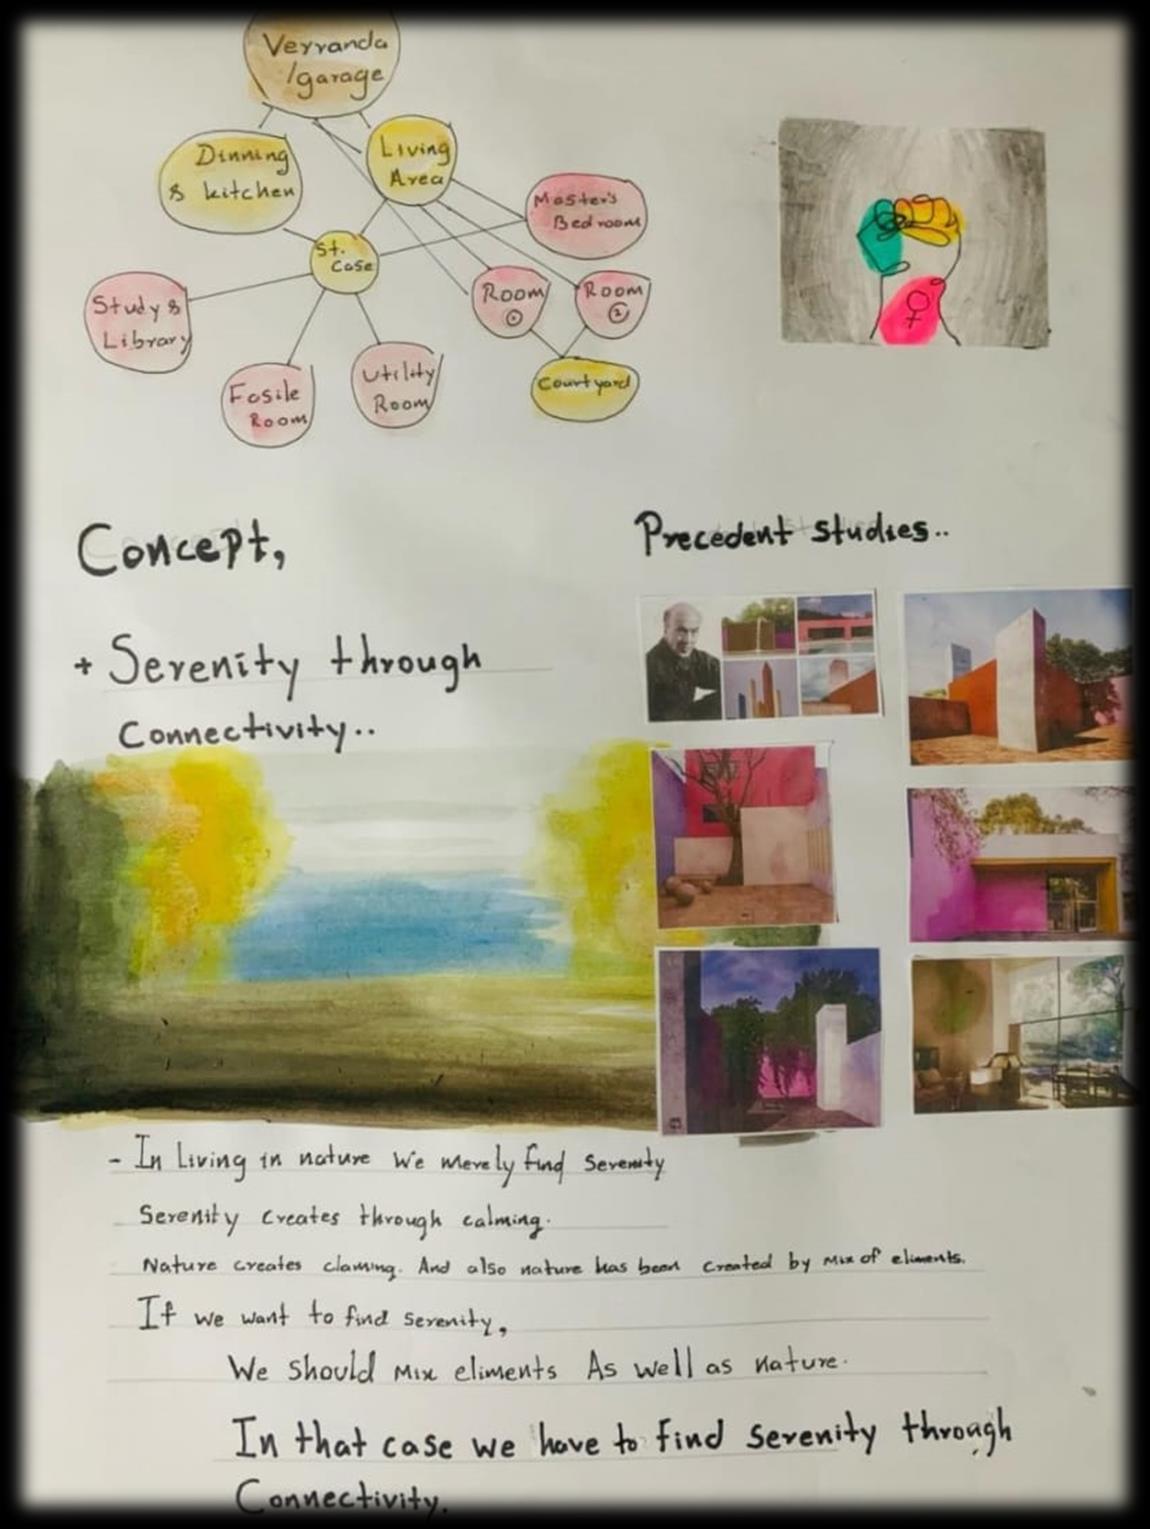 Verranda
/garage
Dinning
& kitchen
Living
Area
Master's
Bedroom
St.
Case
Study &
Library
Room
1
Room
2
Fasile
Room
Utility
Room
Courtyard
Concept,
Precedent studies..
+ Serenity through
Connectivity..
- In Living in nature we merely find serenity
Serenity creates through calming.
Nature creates claming. And also nature has been created by mix of eliments.
If we want to find serenity,
We should mix eliments As well as nature.
In that case we have to find serenity through
Connectivity.